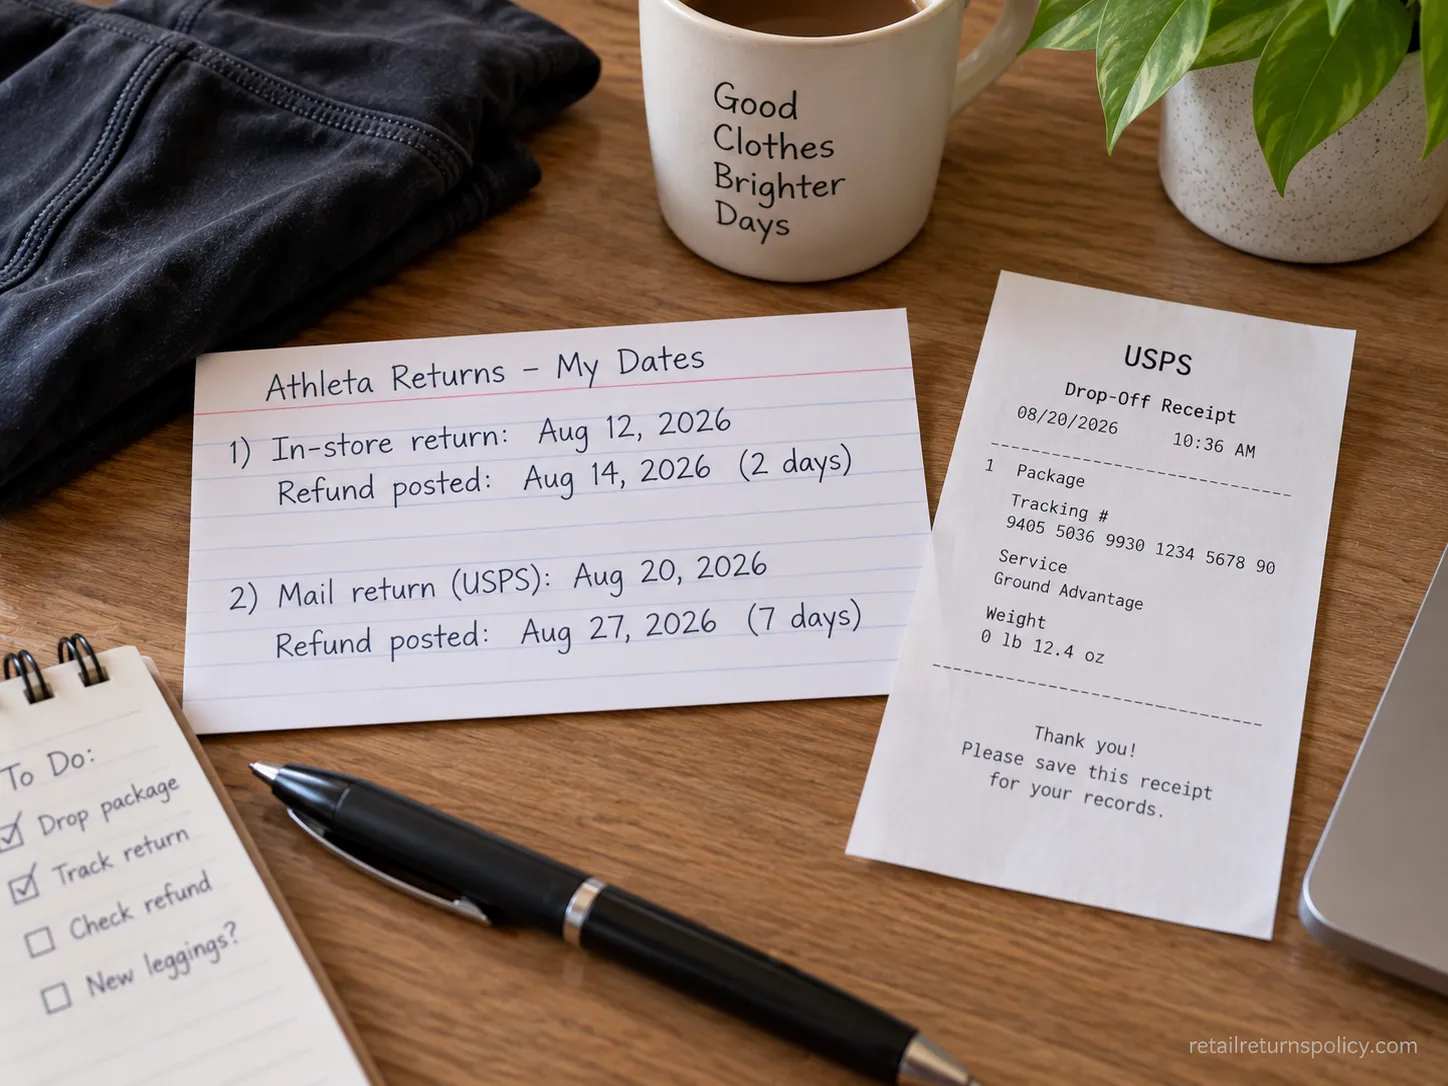 Good
Clothes
Brighter
Days
Athleta Returns – My Dates
1) In-store return: Aug 12, 2026
Refund posted: Aug 14, 2026 (2 days)
2) Mail return (USPS): Aug 20, 2026
Refund posted: Aug 27, 2026 (7 days)
USPS
Drop-Off Receipt
08/20/2026 10:36 AM
1 Package
Tracking #
9405 5036 9930 1234 5678 90
Service
Ground Advantage
Weight
0 lb 12.4 oz
Thank you!
Please save this receipt
for your records.
To Do:
Drop package
Track return
Check refund
New leggings?
retailreturnspolicy.com